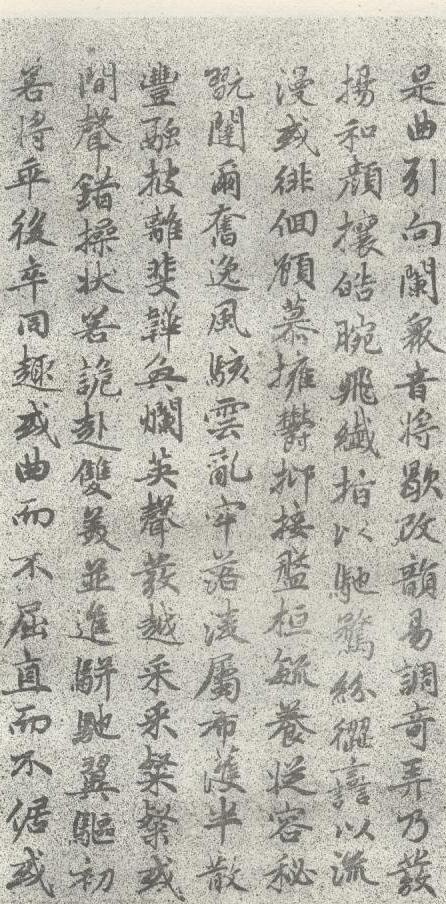 是曲引向闌衆音將歇改韻易調奇弄乃發
揚和顏攘皓腕飛纖指以馳騖紛𠎷譶以流
漫或徘徊顧慕擁鬱抑按盤桓毓養從容秘
翫闥爾奮逸風駭雲亂牢落淩厲布濩半散
豐融披離斐韡奐爛英聲發越采采粲粲或
間聲錯揉狀若詭赴雙美並進駢馳翼驅初
若將乖後卒同趣或曲而不屈直而不倨或